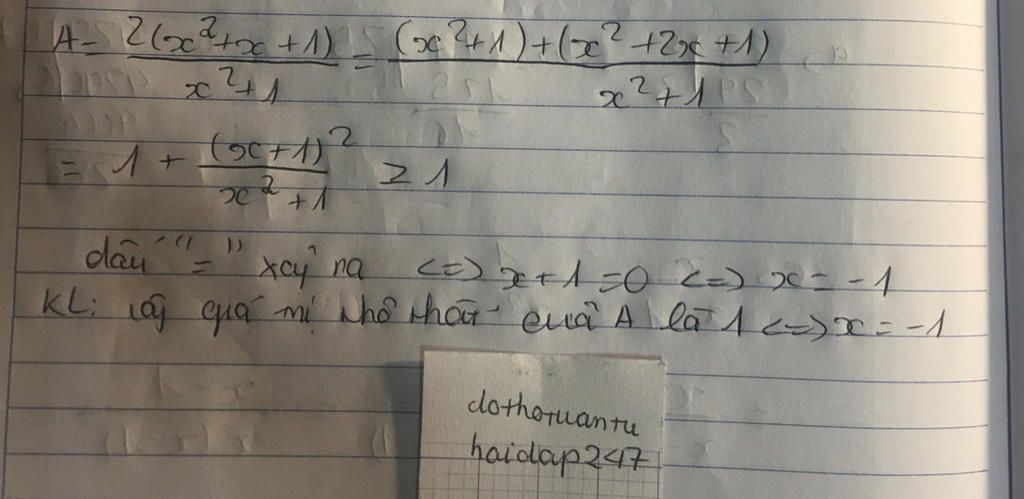 A = 2(x²+x+1)/x²+1 = (x²+1)+(x²+2x+1)/x²+1
= 1 + (x+1)²/x²+1 ≥ 1
dấu "=" xảy ra <=> x+1=0 <=> x=-1
KL: Vậy giá trị nhỏ nhất của A là 1 <=> x=-1
dothotuantu
hoidap247